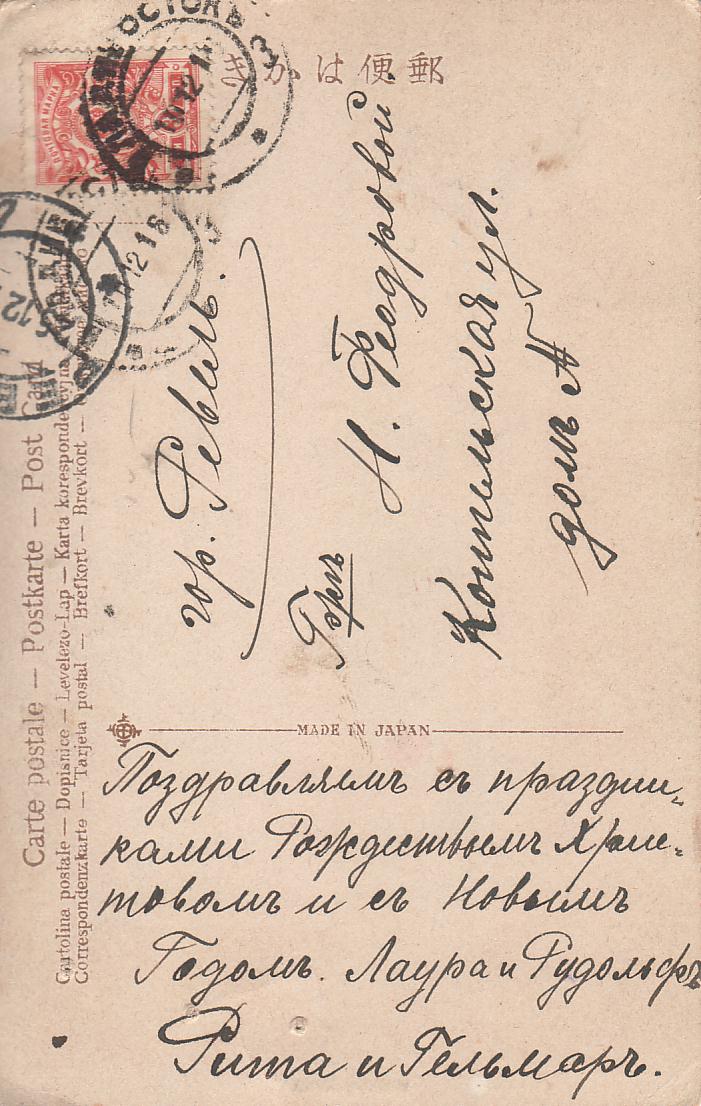 郵便はがき
Carte postale — Postkarte — Post Card
Cartolina postale — Dopisnice — Levelezo-Lap — Karta korespondencyjna
Correspondenzkarte — Tarjeta postal — Brefkort — Brevkort —
ПОЧТОВАЯ МАРКА
гор. Ревель.
Н. Феодровой.
Котельская ул.
домъ
MADE IN JAPAN
Поздравляемъ съ праздни-
ками Рождествомъ Хрис-
товомъ и съ Новымъ
Годомъ. Лаура и Рудольфъ
Рита и Гельмаръ.